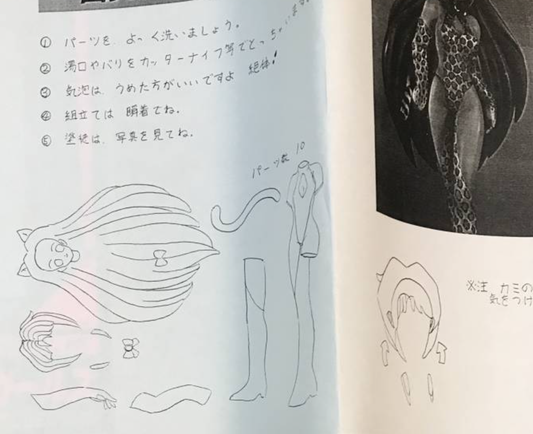 ① パーツを よっく洗いましょう。
② 湯口やバリをカッターナイフ等でとっちゃいます
③ 気泡は、うめた方がいいですよ 絶体!
④ 組立ては 瞬着でね。
⑤ 塗装は、写真を見てね。
パーツ数 10
※注 カミの
気をつけ